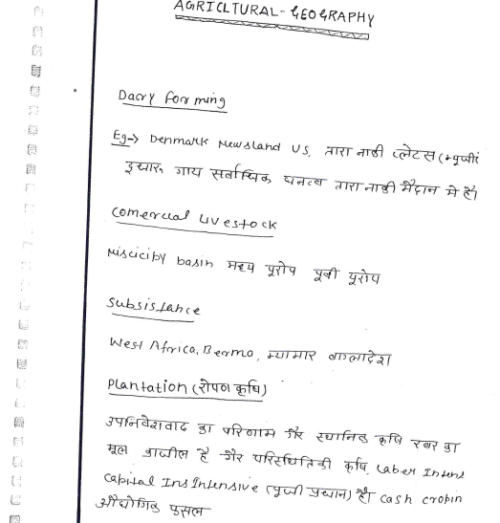 AGRICLTURAL-GEOGRAPHY
Dacry Forming
Eg→ Denmark Newsland US, तारा नाकी प्लेटस (न्यूजी
दुधारू गाय सर्वाधिक घनत्व तारा नाकी मैदान मे है।
Comercual Livestock
Miscicipy basin मध्य यूरोप पूर्वी यूरोप
Subsistance
West Africa, Bermo, म्यामार बांग्लादेश
Plantation (रोपण कृषि)
उपनिवेशवाद का परिणाम गैर स्थानिक कृषि रबर का
मूल ब्राजील है गैर परिस्थितिकी कृषि, Laber Intens
Capital Ins Intensive (पूंजी प्रधान) है। Cash cropin
औद्योगिक फसल